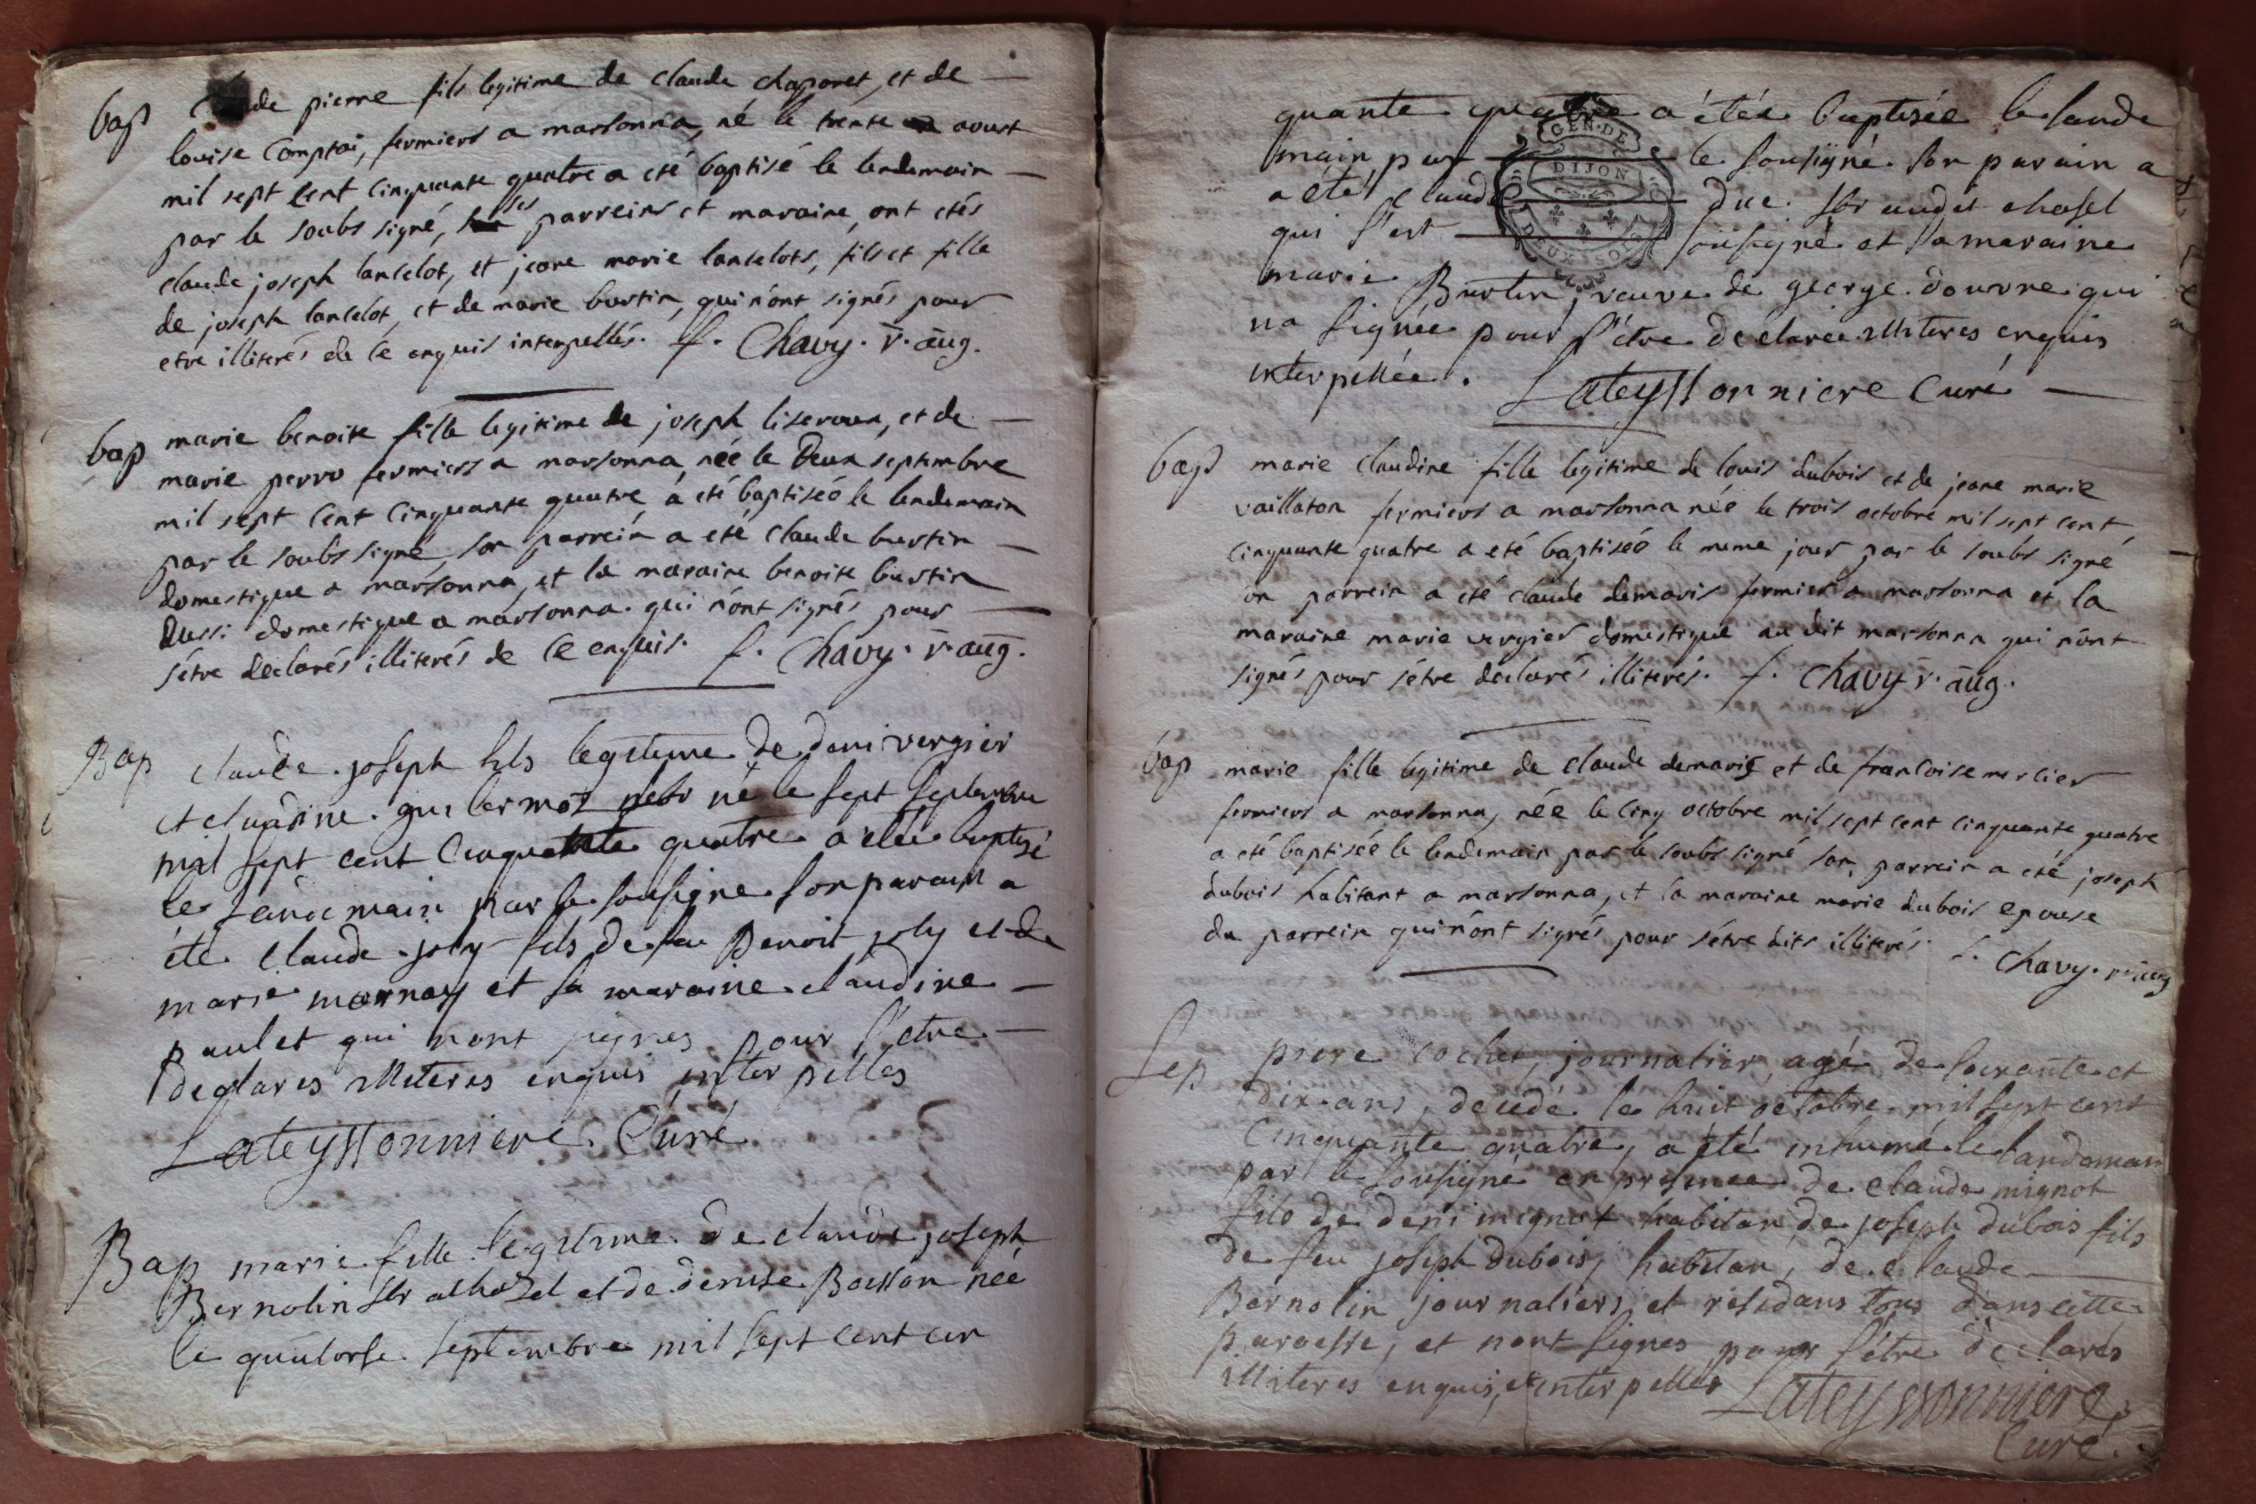 bap
Claude pierre fils legitime de claude chaponet, et de
louise Comptoi, fermiers a marsonna, né le trente aoust
mil sept cent cinquante quatre a eté baptisé le lendemain
par le soubs signé, ses parreins et maraine, ont etés
claude joseph lancelot, et jeane marie lancelots, fils et fille
de joseph lancelot, et de marie burtin, qui n'ont signés pour
etre illiterés de ce enquis interpellés. f. Chavy. v. aug.
bap
marie benoite fille legitime de joseph liseroux, et de
marie perro fermiers a marsonna, née le Deux septembre
mil sept cent cinquante quatre, a eté baptiséé le lendemain
par le soubs signé, son parrein a eté claude burtin
domestique a marsonna, et la maraine benoite burtin
aussi domestique a marsonna. qui n'ont signés pour
s'étre declarés illiterés de ce enquis. f. Chavy. v. aug.
Bap
claude joseph fils legitime de deni vergier
et claudine guilermoz né le sept septembre
mil sept cent cinquante quatre a étée baptisé
le landemain par le sousigné son parain a
été claude joly fils de feu Benoit joly et de
marie mornay et sa maraine claudine
paulet qui nont signes pour s'etre
declares illiteres enquis interpelles
Lateyssonniere Curé
Bap
marie fille legitime de claude joseph
Bernolin sbr a chosel et de denise Boisson née
le quatorse septembre mil sept cent cin
quante quatre a étée baptisée le lande
main par le sousigné son parain a
a été claude duc sbr audit chosel
qui s'est sousigné et sa maraine
marie Burtin, veuve de george douvre qui
na signée pour s'etre declaree illiteres enquis
interpellée. Lateyssonniere Curé
GEN. DE
DIJON
DEUX SOLS
bap
marie claudine fille legitime de louis dubois et de jeane marie
vaillaton fermiers a marsonna née le trois octobre mil sept cent
cinquante quatre a eté baptiséé le meme jour par le soubs signé
on parrein a eté claude demaris fermier a marsonna et la
maraine marie vergier domestique au dit marsonna qui n'ont
signés pour s'étre declarés illiterés. f. Chavy v. aug.
bap
marie fille legitime de claude demaris et de francoise mercier
fermiers a marsonna, née le cinq octobre mil sept cent cinquante quatre
a eté baptiséé le lendemain par le soubs signé son parrein a eté joseph
dubois habitant a marsonna, et la maraine marie dubois epouse
du parrein qui n'ont signés pour s'étre dits illiterés. f. Chavy. v. aug
Sep
piere cochet, journalier, agé de soixante et
dix ans, décédé le huit octobre mil sept cent
cinquante quatre, a été inhumé le landemain
par le sousigné en presence de claude mignot
fils de deni mignot habitan, de joseph dubois fils
de feu joseph dubois, habitan, de claude
Bernolin journaliers, et residans tous dans cette
paroesse, et nont signes pour s'étre declarés
illiteres enquis, et interpelles Lateyssonniere
Curé.